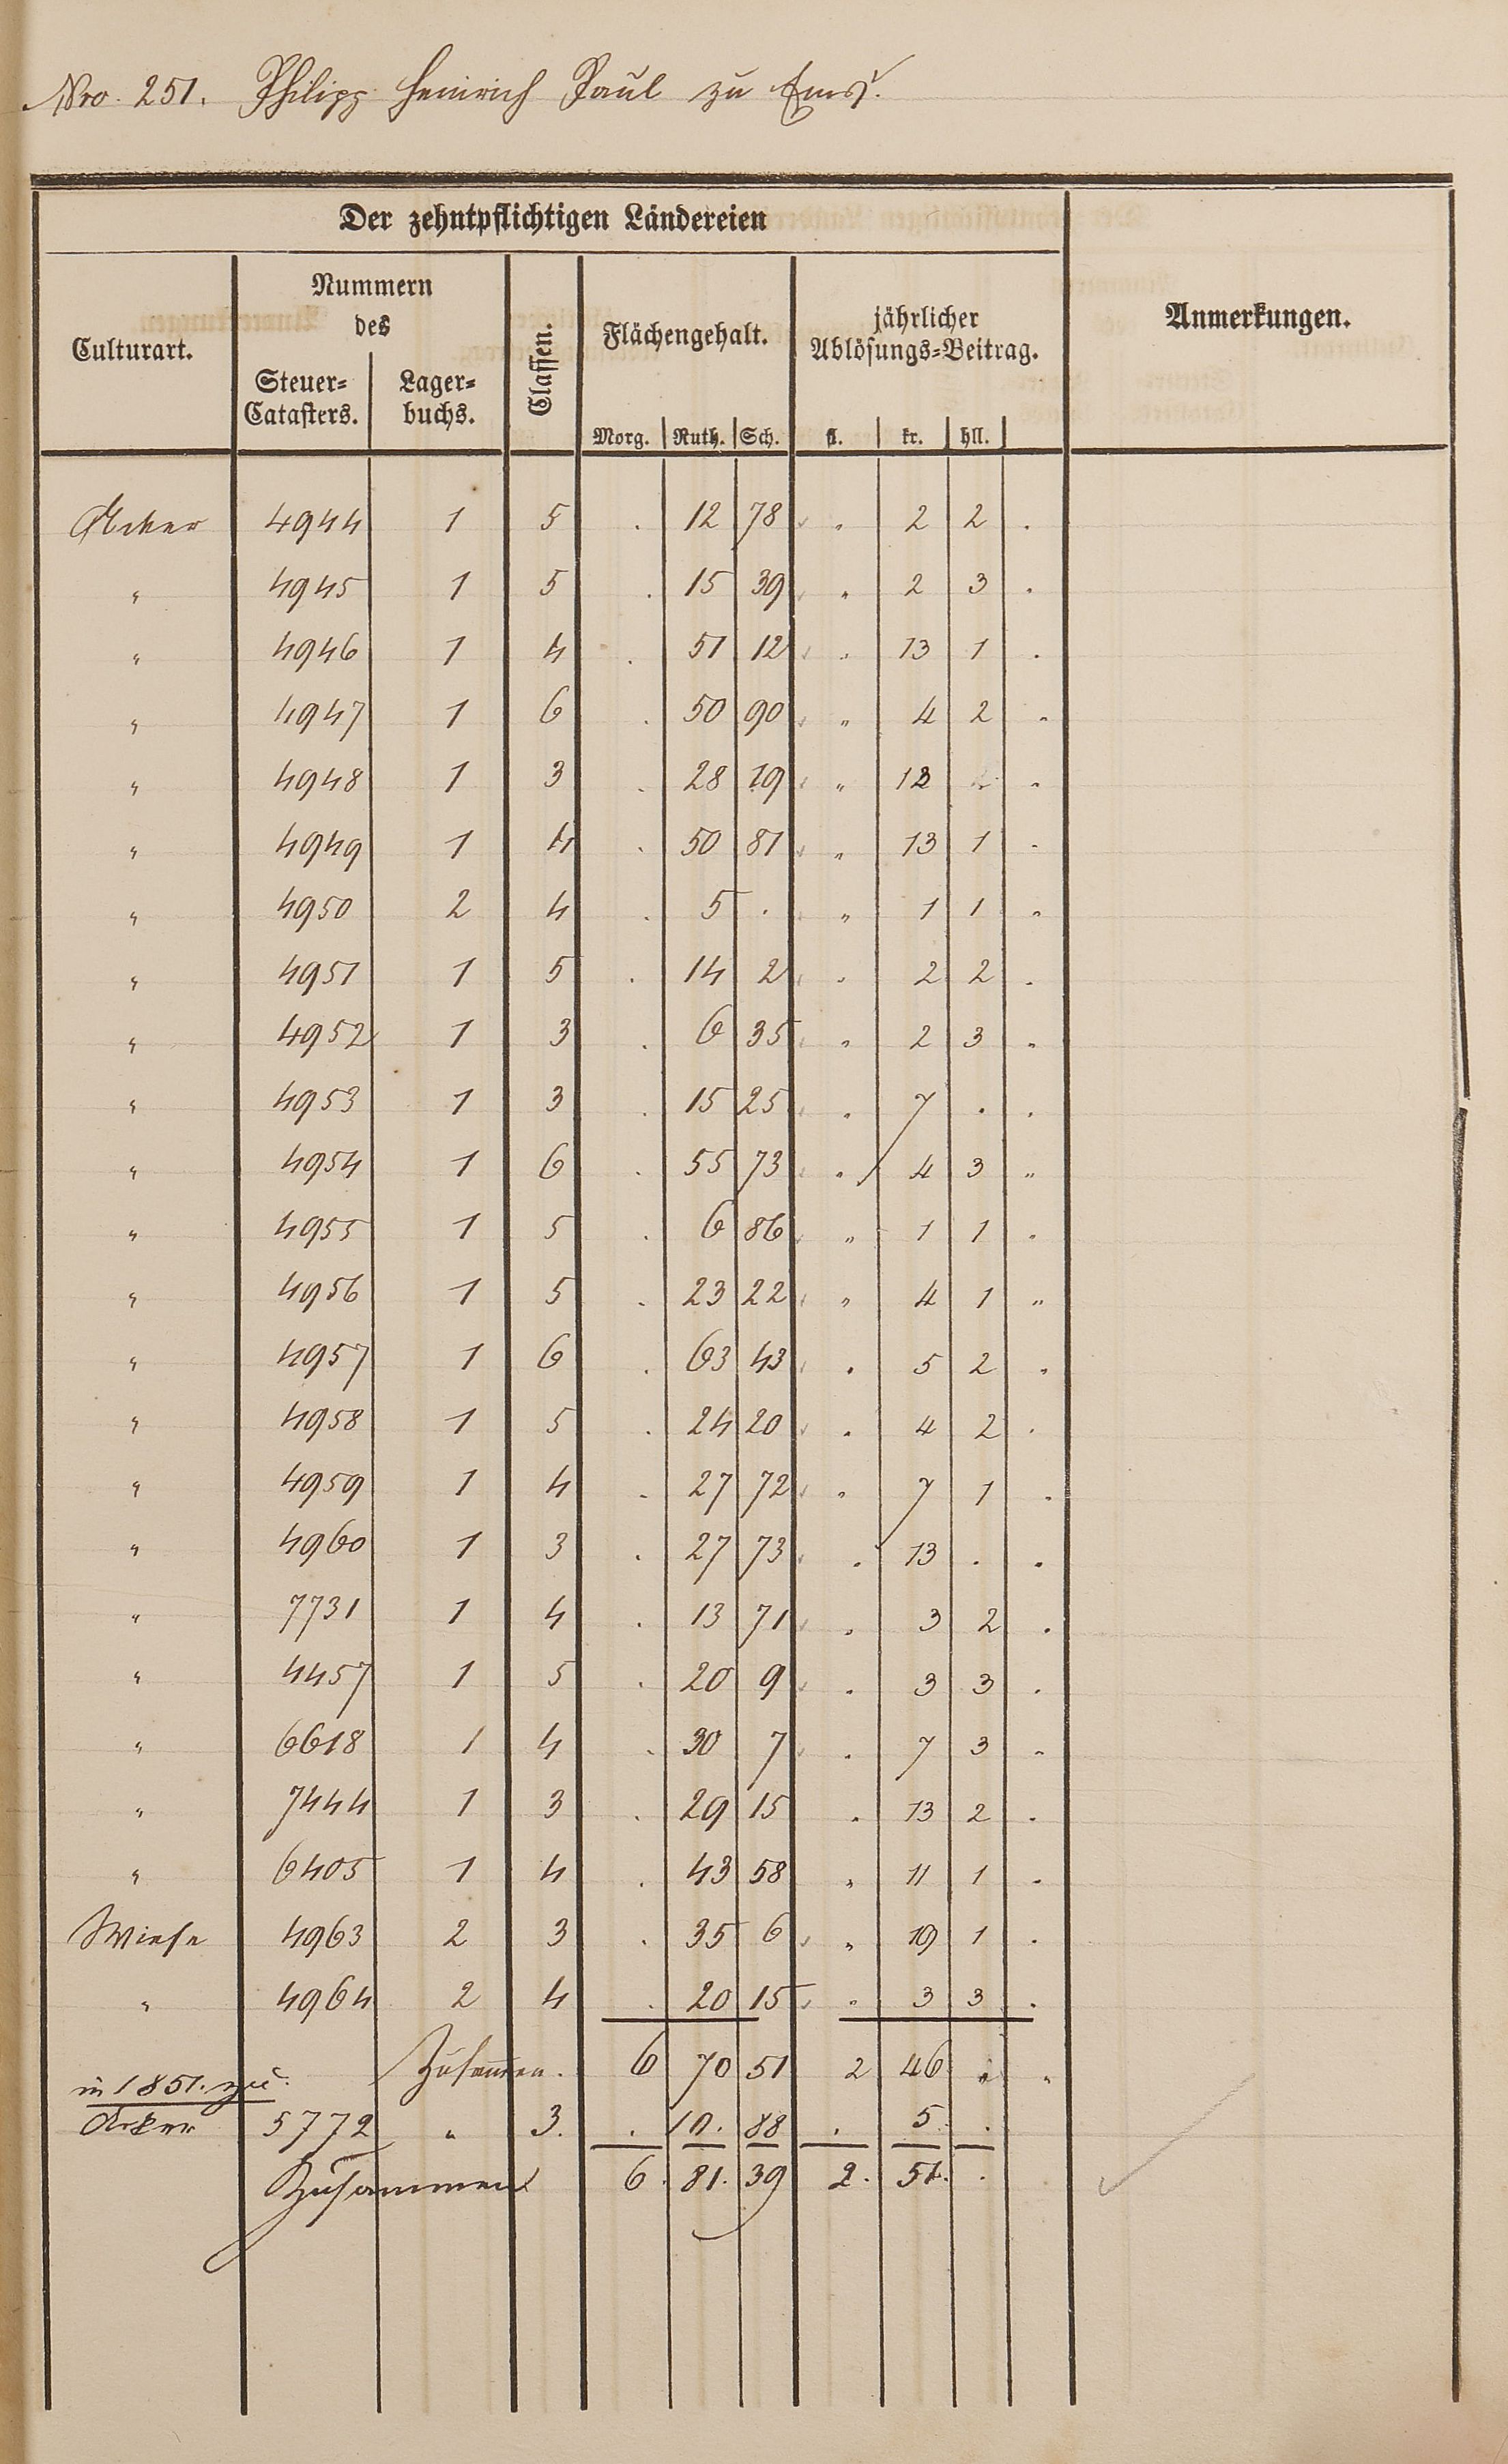 Nro. 251. Philipp Heinrich Paul zu Ems.
Der zehntpflichtigen Ländereien
Culturart. Nummern des Steuer-Catasters. Lager-buchs. Classen. Flächengehalt. jährlicher Ablösungs-Beitrag. Anmerkungen.
Morg. Ruth. Sch. fl. kr. hll.
Acker 4944 1 5 . 12 78 „ 2 2 .
„ 4945 1 5 . 15 39 „ 2 3 .
„ 4946 1 4 . 51 12 „ 13 1 .
„ 4947 1 6 . 50 90 „ 4 2 „
„ 4948 1 3 . 28 19 „ 13 „
„ 4949 1 4 . 50 81 „ 13 1 „
„ 4950 2 4 . 5 . „ 1 1 „
„ 4951 1 5 . 14 2 „ 2 2 .
„ 4952 1 3 . 6 35 „ 2 3 „
„ 4953 1 3 . 15 25 „ 7 . .
„ 4954 1 6 . 55 73 „ 4 3 „
„ 4955 1 5 . 6 86 „ 1 1 .
„ 4956 1 5 . 23 22 „ 4 1 „
„ 4957 1 6 . 63 43 . 5 2 .
„ 4958 1 5 . 24 20 . 4 2 .
„ 4959 1 4 . 27 72 „ 7 1 .
„ 4960 1 3 . 27 73 . 13 . .
„ 7731 1 4 . 13 71 „ 3 2 .
„ 4457 1 5 . 20 9 . 3 3 .
„ 6618 1 4 . 30 7 . 7 3 „
„ 7444 1 3 . 29 15 . 13 2 .
„ 6405 1 4 . 43 58 „ 11 1 .
Wiese 4963 2 3 . 35 6 „ 19 1 .
„ 4964 2 4 . 20 15 „ 3 3 .
Zusammen. 6 70 51 2 46 „ „
in 1851. zu.
Acker 5772 „ 3. . 10. 88 . 5 .
Zusammen 6. 81. 39 2. 51. .